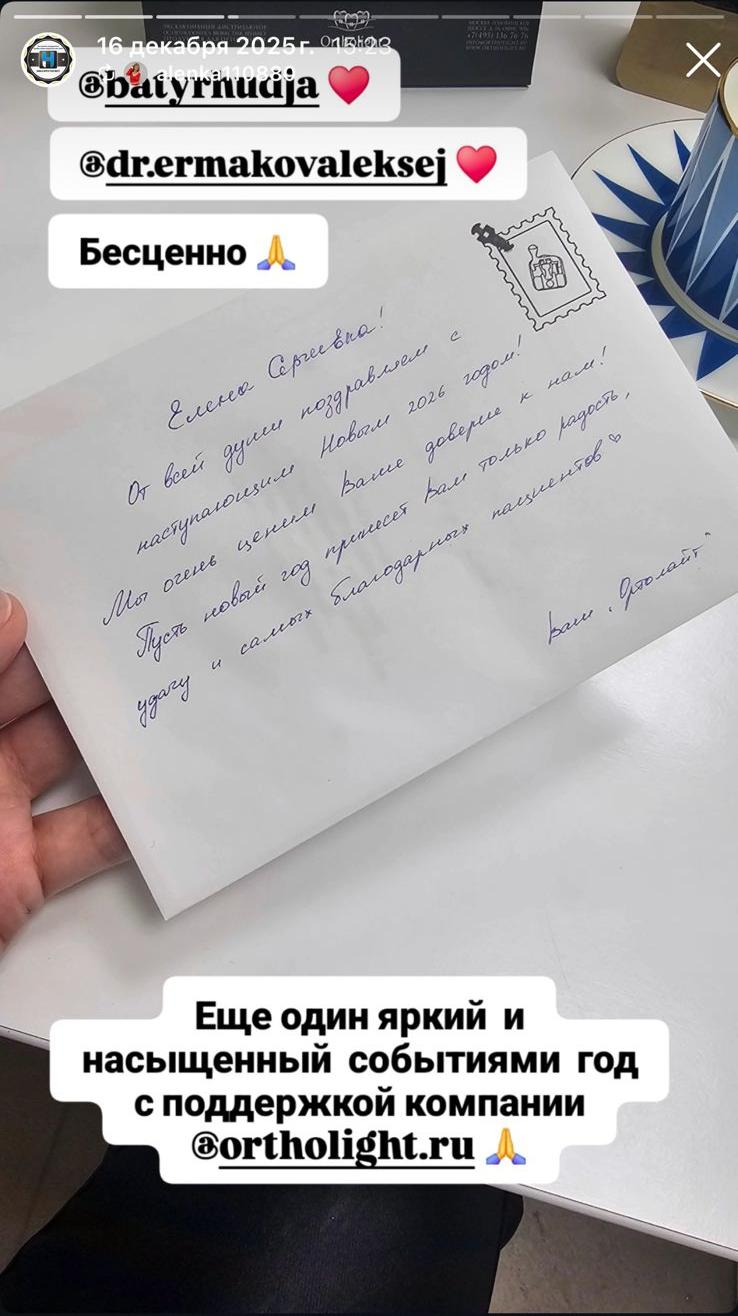 16 декабря 2025 г. 15:23
alenka110889
@batyrhudja
@dr.ermakovaleksej
Бесценно
Елена Сергеевна!
От всей души поздравляем с
наступающим Новым 2026 годом!
Мы очень ценим Ваше доверие к нам!
Пусть новый год принесет Вам только радость,
удачу и самых благодарных пациентов
Ваш „Ортолайт"
Еще один яркий и
насыщенный событиями год
с поддержкой компании
@ortholight.ru